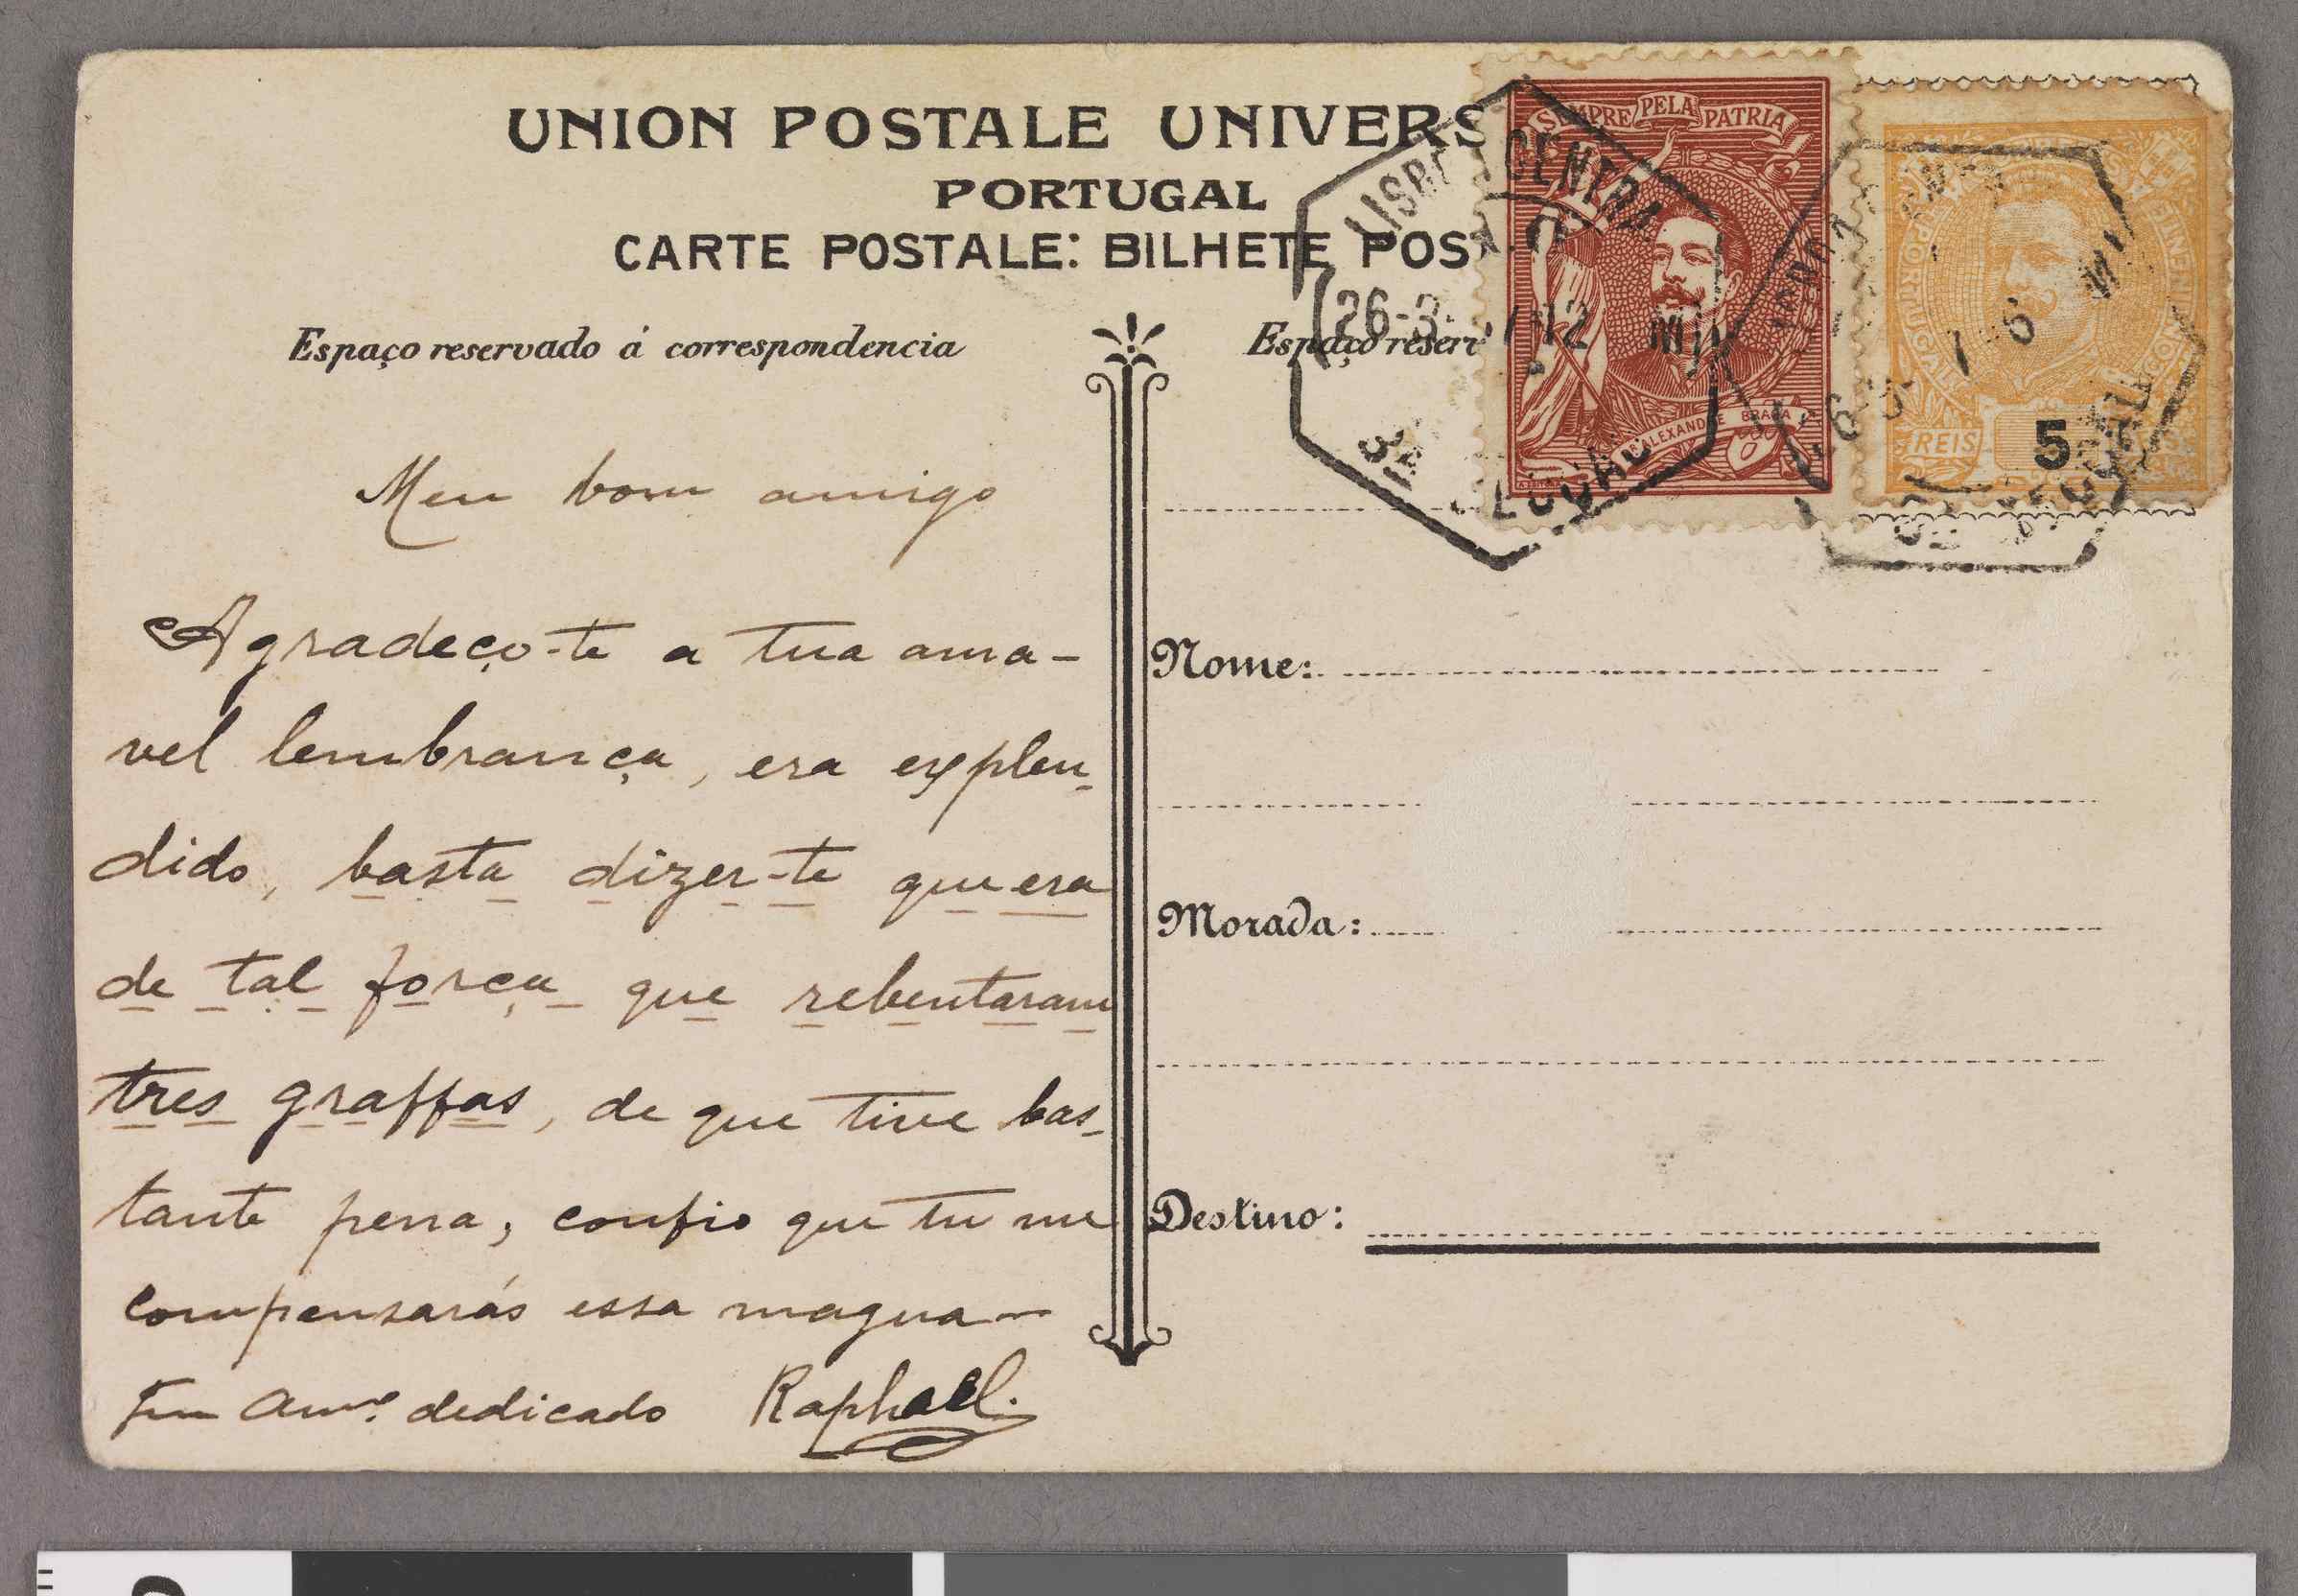 UNION POSTALE UNIVERS
PORTUGAL
CARTE POSTALE: BILHETE POS
Espaço reservado á correspondencia
Espaço reser
SEMPRE PELA PATRIA
ALEXANDRE BRAGA
LISBOA CENTRAL
26-3
PORTUGAL
REIS
5
Meu bom amigo
Agradeço-te a tua ama-
vel lembrança, era esplen-
dido, basta dizer-te que era
de tal força que rebentaram
tres graffas, de que tive bas-
tante pena, confio que tu me
compensarás essa magua-
Teu amº. dedicado Raphael.
Nome:
Morada:
Destino: